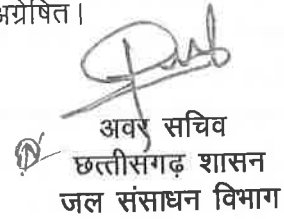 अग्रेषित।
अवर सचिव
छत्तीसगढ़ शासन
जल संसाधन विभाग